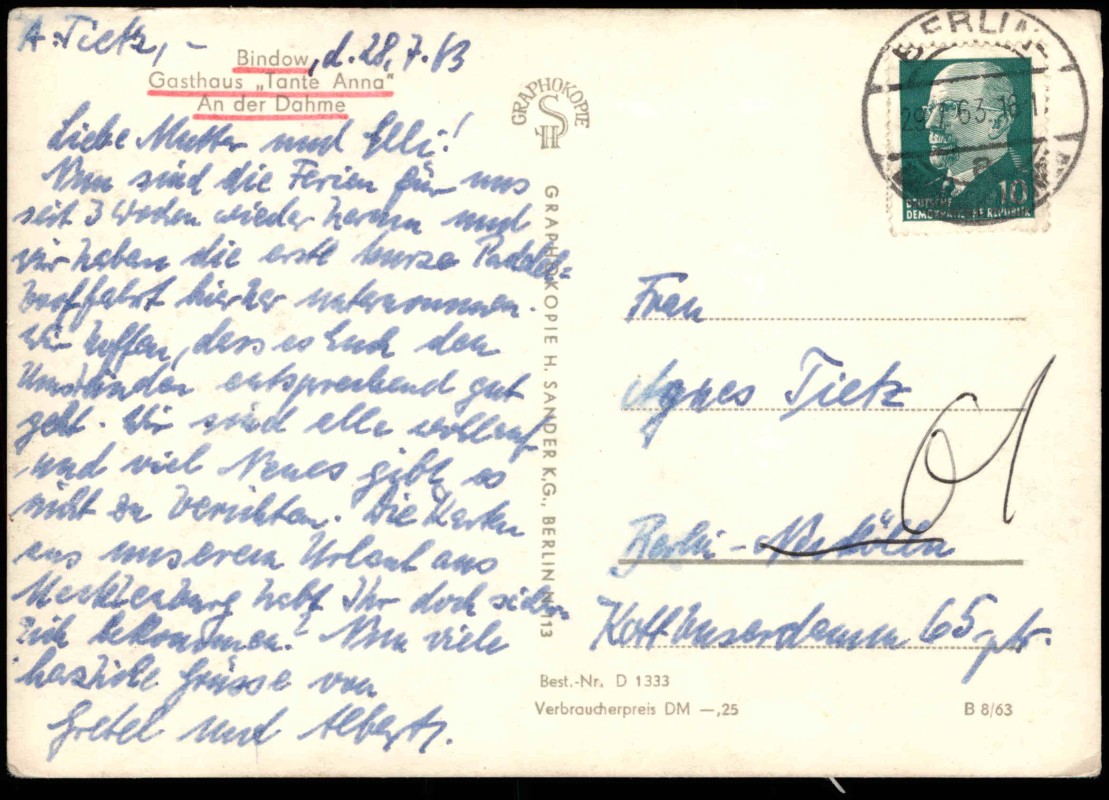 A. Tietz, -
Bindow, d. 28.7.63
Gasthaus „Tante Anna"
An der Dahme
Liebe Mutter und Elli!
Nun sind die Ferien für uns
seit 3 Wochen wieder herum und
wir haben die erste kurze Paddel=
bootfahrt hierher unternommen.
Wir hoffen, dass es Euch den
Umständen entsprechend gut
geht. Wir sind alle wohlauf
und viel Neues gibt es
nicht zu berichten. Die Karten
aus unserem Urlaub aus
Mecklenburg habt Ihr doch sicher
bekommen? Nun viele
herzliche Grüsse von
Gretel und Albert.
GRAPHOKOPIE
H S
GRAPHOKOPIE H. SANDER K.G., BERLIN N 113
BERLIN
29.7.63.-18
a
10
DEUTSCHE
DEMOKRATISCHE REPUBLIK
Frau
Agnes Tietz
Berlin - Neukölln
Kottbuserdamm 65 ptr.
Best.-Nr. D 1333
Verbraucherpreis DM —,25
B 8/63